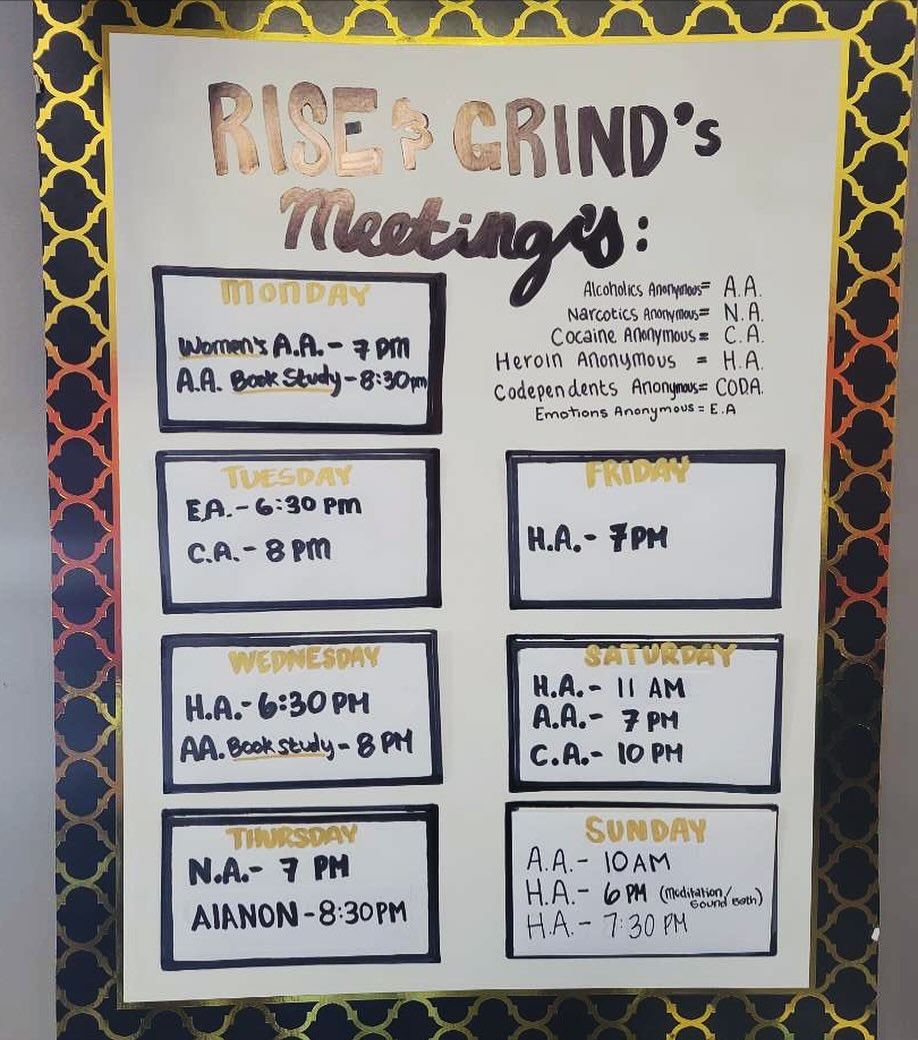 RISE & GRIND's
Meeting's:
Alcoholics Anonymous= A.A.
Narcotics Anonymous= N.A.
Cocaine Anonymous= C.A.
Heroin Anonymous = H.A.
Codependents Anonymous= CODA.
Emotions Anonymous= E.A
MONDAY
Women's A.A. - 7 pm
A.A. Book Study - 8:30pm
TUESDAY
E.A. - 6:30 pm
C.A. - 8 pm
WEDNESDAY
H.A. - 6:30 PM
AA. Book study - 8 PM
THURSDAY
N.A. - 7 PM
AlANON - 8:30PM
FRIDAY
H.A. - 7PM
SATURDAY
H.A. - 11 AM
A.A. - 7 PM
C.A. - 10 PM
SUNDAY
A.A. - 10 AM
H.A. - 6 PM (Meditation/
Sound Bath)
H.A. - 7:30 PM